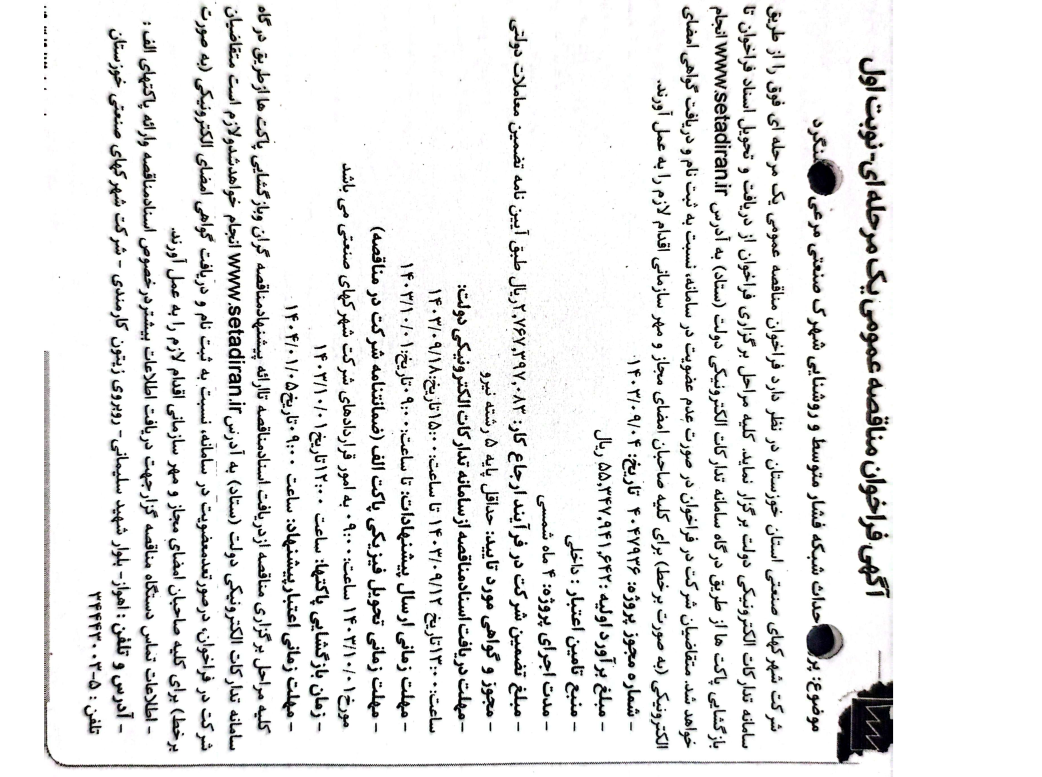 آگهی فراخوان مناقصه عمومی یک مرحله ای- نوبت اول
موضوع: احداث شبکه فشار متوسط و روشنایی شهرک صنعتی مرغی
شرکت شهرکهای صنعتی استان خوزستان در نظر دارد فراخوان مناقصه عمومی یک مرحله ای فوق را از طریق
سامانه تدارکات الکترونیکی دولت برگزار نماید. کلیه مراحل برگزاری فراخوان از دریافت و تحویل اسناد فراخوان تا
بازگشایی پاکت ها از طریق درگاه سامانه تدارکات الکترونیکی دولت (ستاد) به آدرس www.setadiran.ir انجام
خواهد شد. متقاضیان شرکت در فراخوان در صورت عدم عضویت در سامانه، نسبت به ثبت نام و دریافت گواهی امضای
الکترونیکی (به صورت برخط) برای کلیه صاحبان امضای مجاز و مهر سازمانی اقدام لازم را به عمل آورند.
- شماره مجوز پروژه: ۴۰۴۷۹۳۶ تاریخ: ۱۴۰۳/۰۹/۰۴
- مبلغ برآورد اولیه: ۵۵,۳۴۷,۹۴۱,۶۴۲ ریال
- منبع تامین اعتبار : داخلی
- مدت اجرای پروژه: ۴ ماه شمسی
- مبلغ تضمین شرکت در فرآیند ارجاع کار: ۲,۷۶۷,۳۹۷,۰۸۳ریال طبق آیین نامه تضمین معاملات دولتی
- مجوز و گواهی مورد تایید: حداقل پایه ۵ رشته نیرو
-مهلت دریافت اسنادمناقصه ازسامانه تدارکات الکترونیکی دولت:
ساعت: ۱۳:۰۰تاریخ ۱۴۰۳/۰۹/۱۲ تا ساعت: ۱۵:۰۰تاریخ:۱۴۰۳/۰۹/۱۸
- مهلت زمانی ارسال پیشنهادات: تا ساعت:۰۹:۰۰تاریخ:۱۴۰۳/۱۰/۰۱
- مهلت زمانی تحویل فیزیکی پاکت الف (ضمانتنامه شرکت در مناقصه)
مورخ۱۴۰۳/۱۰/۰۱ ساعت:۰۹:۰۰ به امور قراردادهای شرکت شهرکهای صنعتی می باشد
- زمان بازگشایی پاکتها: ساعت ۱۲:۰۰تاریخ۱۴۰۳/۱۰/۰۱
- مهلت زمانی اعتبارپیشنهاد: ساعت ۰۹:۰۰تاریخ۱۴۰۴/۰۱/۰۵
کلیه مراحل برگزاری مناقصه ازدریافت اسنادمناقصه تاارائه پیشنهادمناقصه گران وبازگشایی پاکت ها ازطریق درگاه
سامانه تدارکات الکترونیکی دولت (ستاد) به آدرس www.setadiran.ir انجام خواهدشدولازم است متقاضیان
شرکت در فراخوان، درصورتعدمعضویت در سامانه، نسبت به ثبت نام و دریافت گواهی امضای الکترونیکی (به صورت
برخط) برای کلیه صاحبان امضای مجاز و مهر سازمانی اقدام لازم را به عمل آورند.
- اطلاعات تماس دستگاه مناقصه گزارجهت دریافت اطلاعات بیشتردرخصوص اسنادمناقصه وارائه پاکتهای الف :
- آدرس و تلفن : اهواز- بلوار شهید سلیمانی- روبروی زیتون کارمندی - شرکت شهرکهای صنعتی خوزستان
تلفن : ۵-۳۴۴۴۳۰۰۳